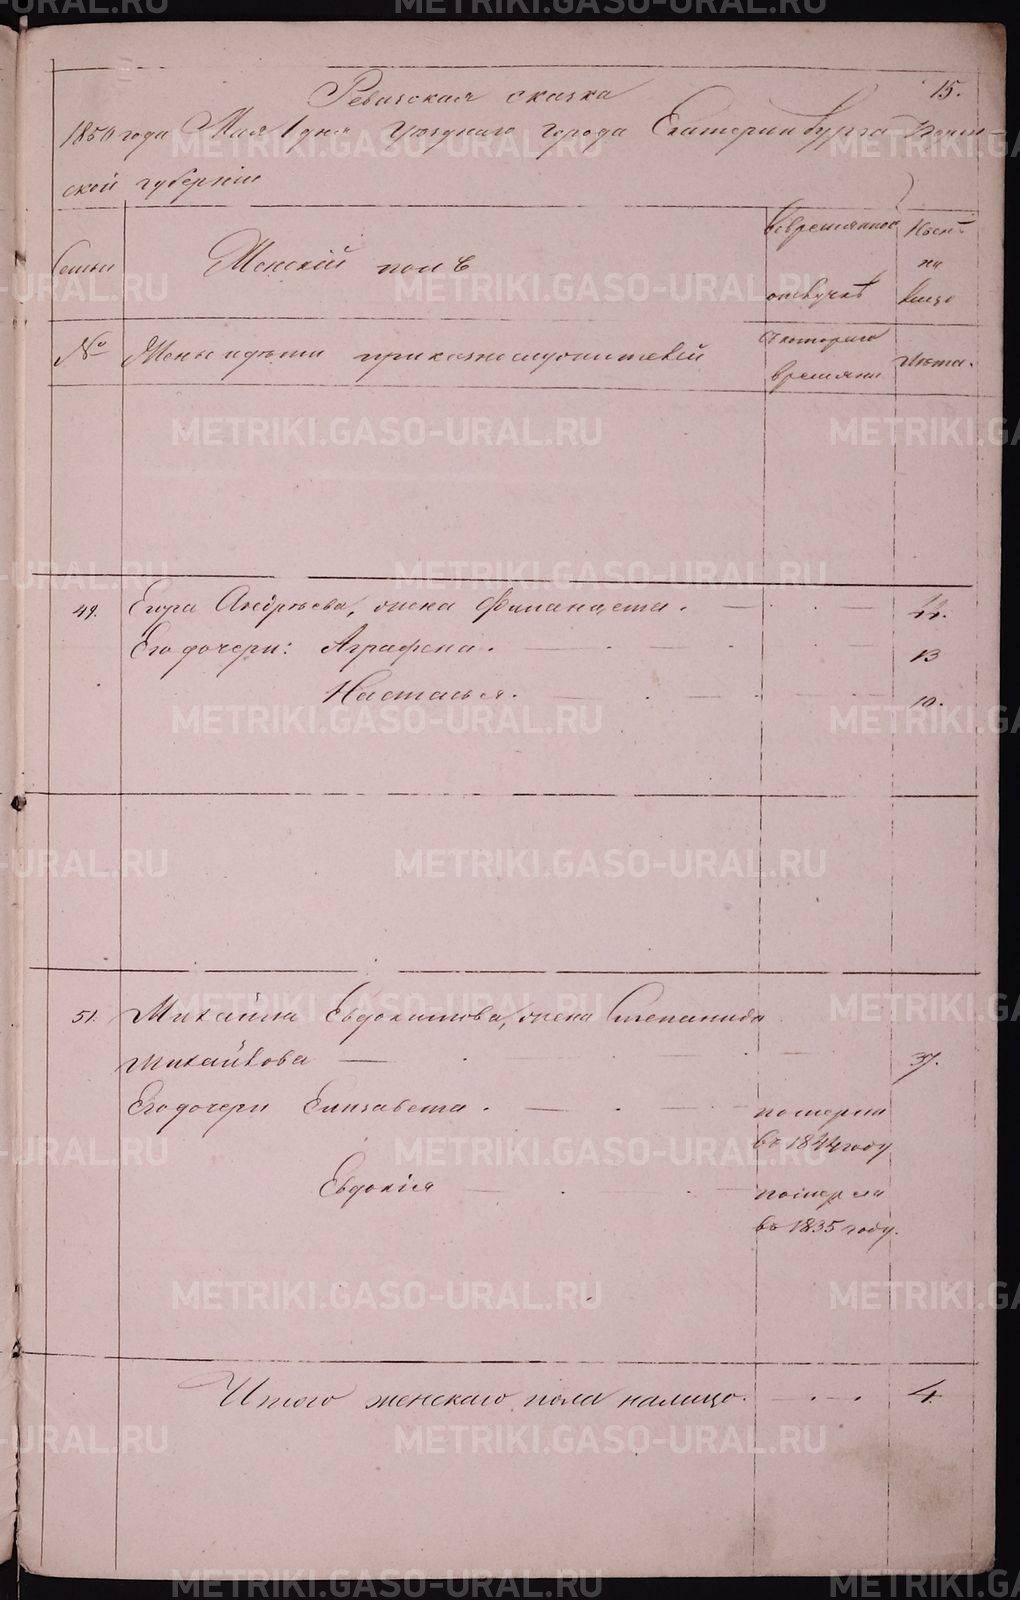 15.
Ревизская сказка
1850 года Мая 1 дня уезднаго города Екатеринбурга Перм-
ской губернии
Семьи
Женский полъ
Вовременной
отлучкѣ
Ныне
на
лицо
№
Жены и дѣти приказнослужителей
Съ котораго
времяни
Лѣта.
49. Егора Андрѣева, жена . — . —
Его дочери: Аграфена. — . — . — 13
Настасья. — . — . — 10.
51. Михайла Евдокимова, жена Степанида
Михайлова — . — . — 37.
Его дочери Елизавета. — . — померла
въ 1844 году
Евдокия — . — померла
въ 1835 году.
Итого женскаго пола налицо. — . — . 4.
METRIKI.GASO-URAL.RU